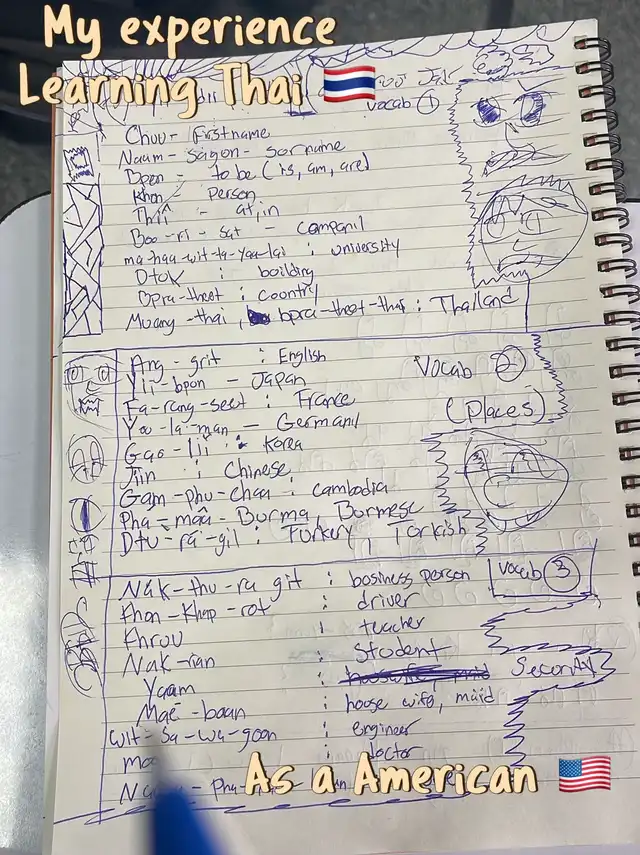 My experience
Learning Thai 🇹🇭
Vocab ①
Chuu - firstname
Naam - sagon - sorname
Bpen - to be (is, am, are)
Khon person
Thîi - at, in
Boo - ri - sat - Companil
ma-haa-wit-ta-yaa-lai : university
Dtuk : boilding
Bpra-theet : Country
Muang - thai, bpra-theet-thai : Thailand
Vocab ②
(Places)
Ang - grit : English
Yii - bpon - Japan
Fa-rang-seet : France
Yoo-la-man - Germanil
Gao - lii : Korea
Jiin : Chinese
Gam-phu-chaa : Cambodia
Pha - maâ - Burma, Burmese
Dtu - ra - gii : Turkery, Torkish
Vocab ③
Nák-thu-ra git : bosiness person
Khon - Khap - rot : driver
Khruu : teacher
Nak - rian : Student
Yaam : Secority
Maê - baan : house wife, maid
wit - sa - wa - goon : engineer
mo : doctor
As a American 🇺🇸